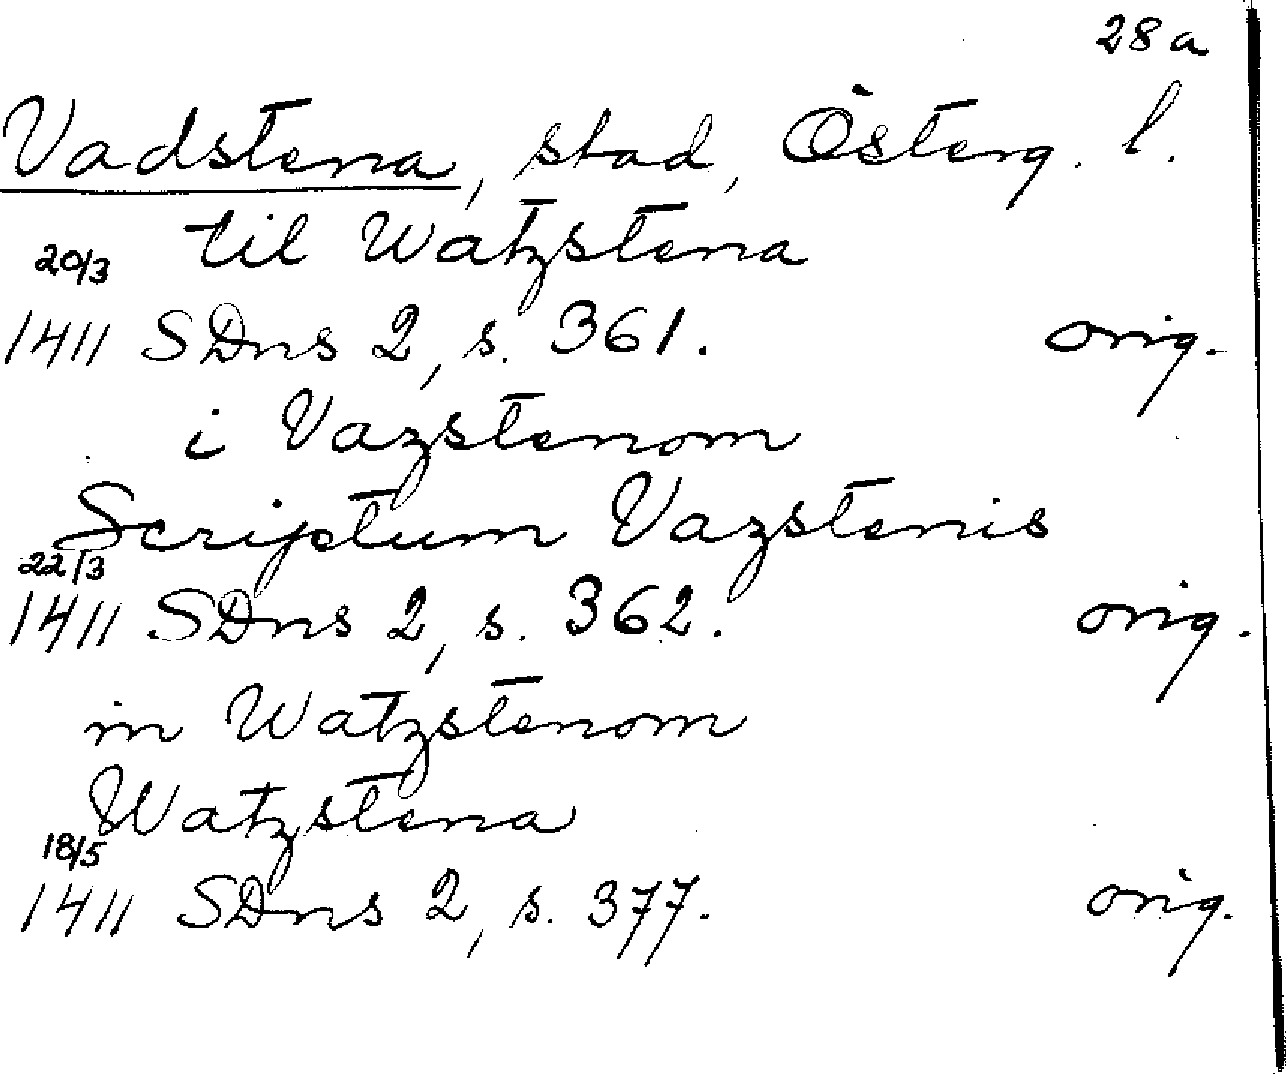 28a
Vadstena, stad, Österg. l.
til Watzstena
20/3
1411 SDns 2, s. 361. orig.
i Vazstenom
Scriptum Vazstenis
22/3
1411 SDns 2, s. 362. orig.
in Watzstenom
Watzstena
18/5
1411 SDns 2, s. 377. orig.